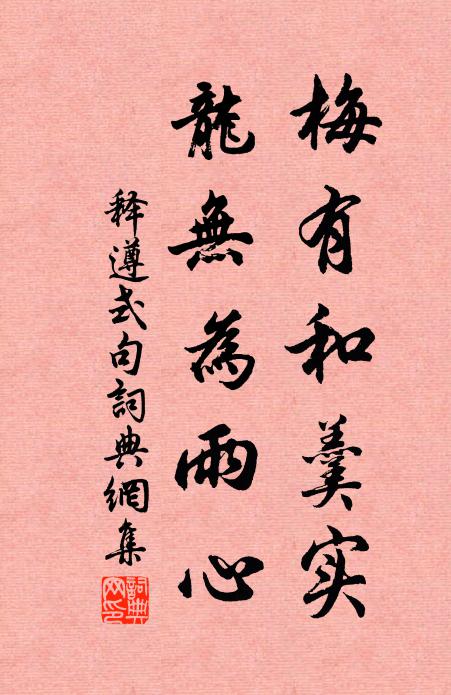 梅有和羹实
龍無為雨心
释遵式句詞典網集
詞典网印